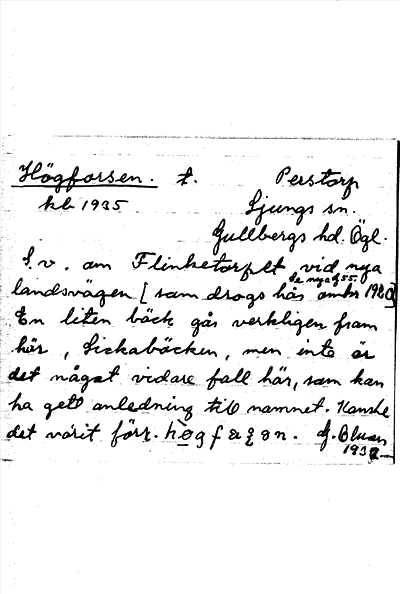 Högforsen. t. Perstorp
kb 1935 Ljungs sn.
Gullbergs hd. Ögl.
S.v. om Flinketorpet vid nya
Se nya G55.
landsvägen [som drogs här omkr 1920]
En liten bäck går verkligen fram
här, Sickabäcken, men inte är
det något vidare fall här, som kan
ha gett anledning till namnet. Kanske
det varit förr.